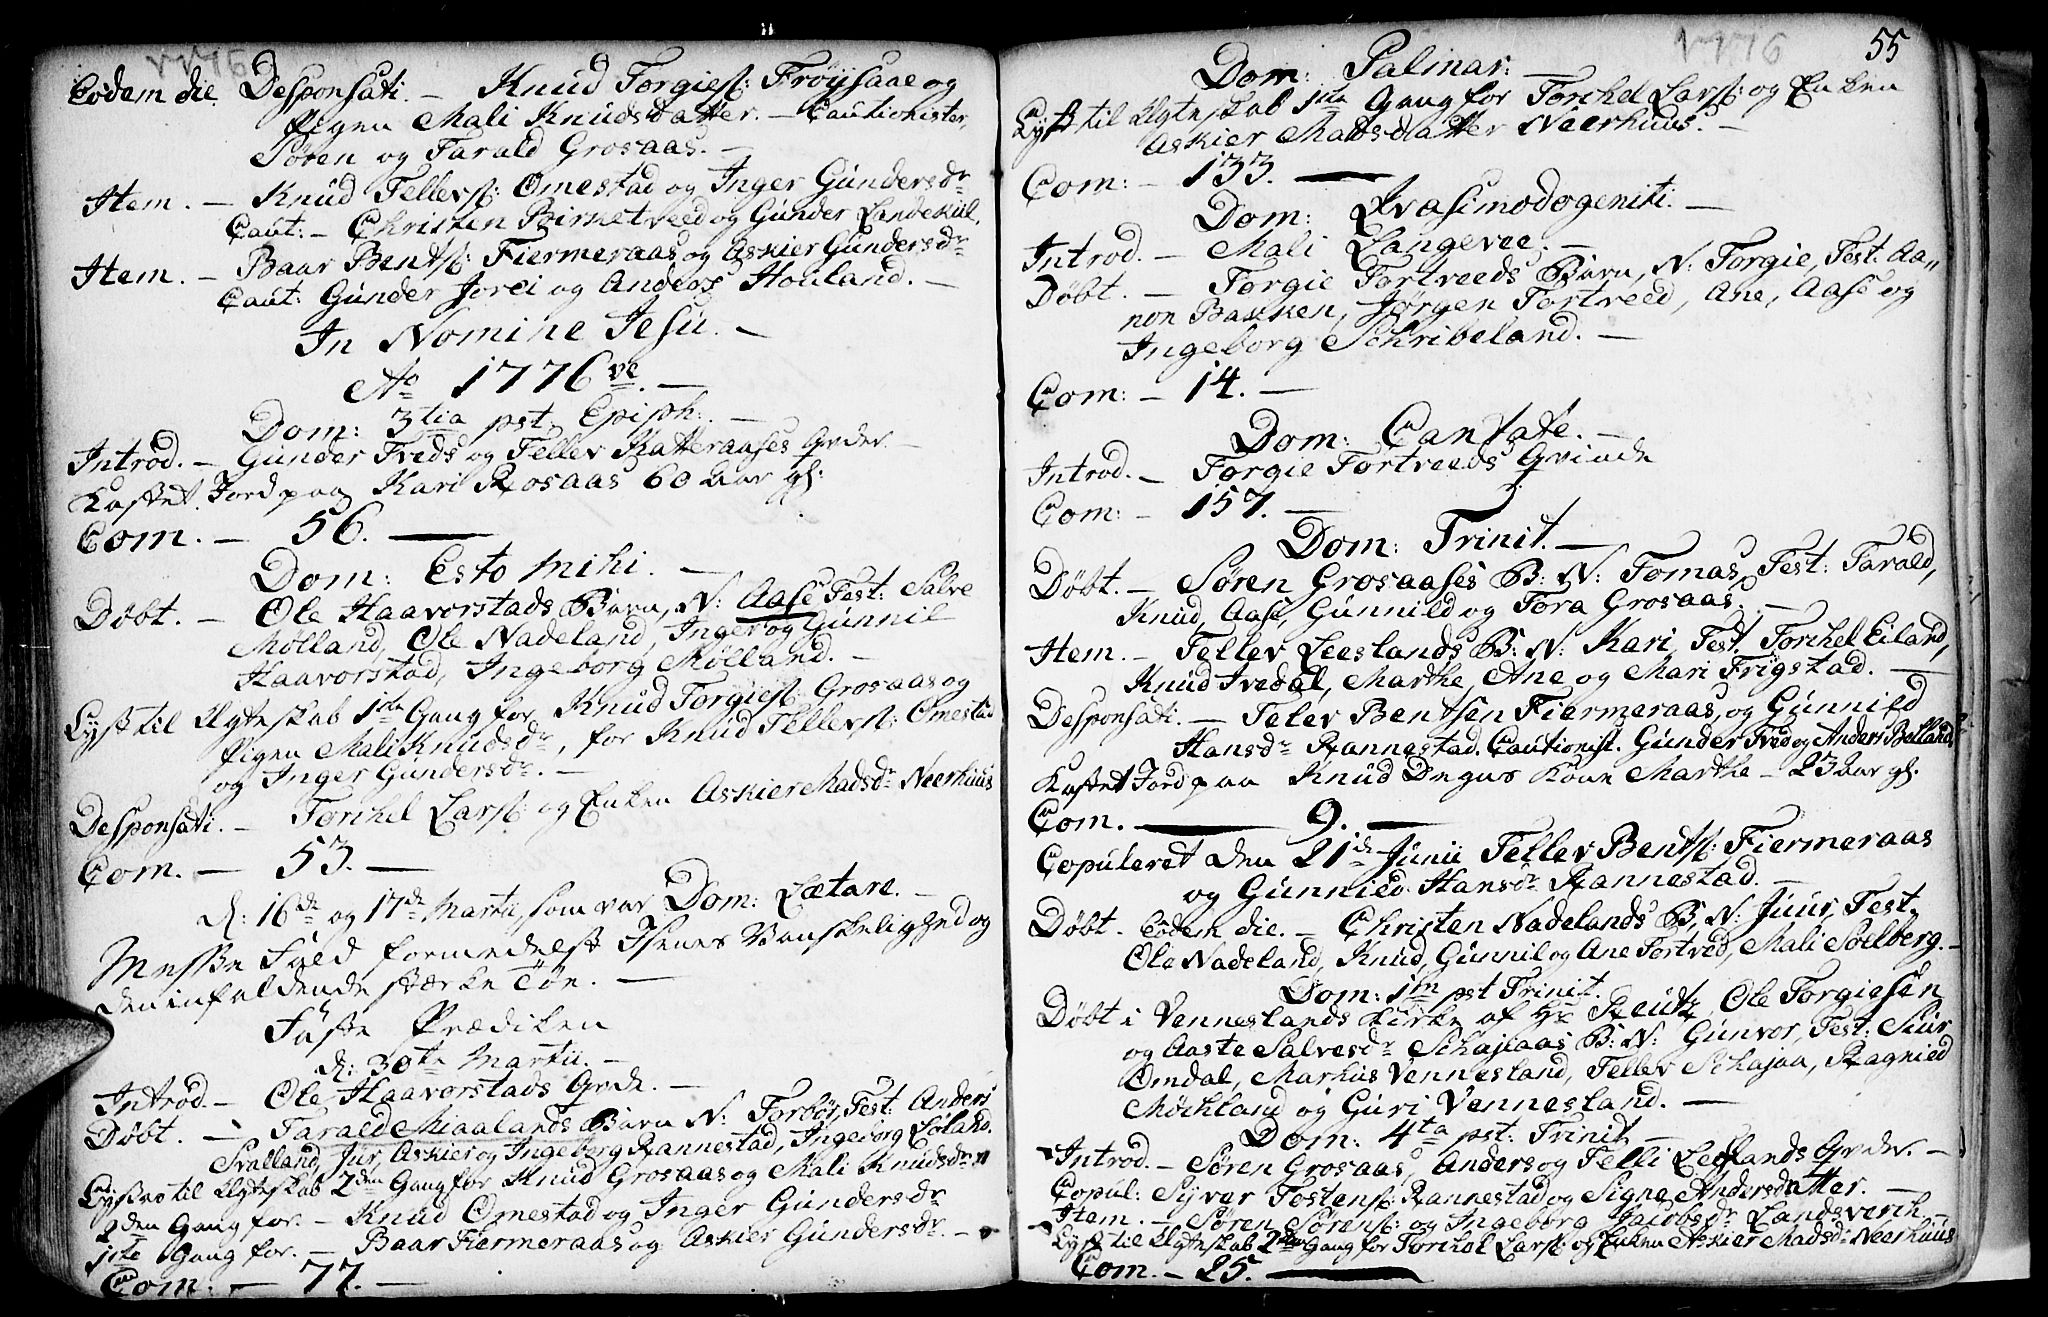 1776
Eodem die Desponsati. – Knud Torgies: Frøÿsaae og
Pigen Mali Knudsdatter. – Cautionister,
Søren og Tarald Grosaas. –
Item. – Knud Tellevs: Omestad og Inger Gundersdr
Caut: – Christen Birketveed og Gunder Landekiil.
Item. – Baar Bents: Fiermeraas og Askier Gundersdr
Caut: Gunder Jorei og Anders Houland. –
In Nomine Jesu. –
Ao 1776ve. –
Dom: 3tia pst. Epiph: –
Introd. – Gunder Treds og Tellev Ratteraases Qvder. –
Kastet Jord paa Kari Rosaas 60 Aar gl:
Com. – 56. –
Dom: Esto Mihi. –
Døbt. – Ole Haavorstads Barn, N: Aase Test: Salve
Mølland, Ole Nadeland, Inger og Gunnil
Haavorstad, Ingeborg Mølland. –
Lyst til Ægteskab 1ste Gang for Knud Torgies: Grosaas og
Pigen Mali Knudsdr, for Knud Tellevs: Omestad
og Inger Gundersdr. –
Desponsati. – Torchel Lars: og Enken Askier Madsdr Neerhuus
Com. – 53. –
d: 16de og 17de Martii, som var Dom: Lætare. –
Messe Fald formedelst Isenes Vanskelighed og
den infaldende stærke Tøe. –
Faste Prædiken
d: 30te Martii. –
Introd. – Ole Haavorstads Qvde. –
Døbt. – Tarald Miaalands Barn N: Torbør, Test: Anders
Svalland, Jur, Askier og Ingeborg Rannestad, Ingeborg Løland.
Lysning til Ægteskab 2den Gang for Knud Grosaas og Mali Knudsdr
2den Gang for. – Knud Omestad og Inger Gundersdr
1ste Gang for. – Baar Fiermeraas og Askier Gundersdr. –
Com: – 77. –
1776
55
Dom: Palmar: –
Lyst til Ægteskab 1ste Gang for Torchel Lars: og Enken
Askier Madsdatter Neerhuus. –
Com: – 133. –
Dom: Qvasimodogeniti. –
Introd. – Mali Langevee. –
Døbt. – Torgie Tortveeds Barn, N: Torgie, Test: Aa„
non Bakken, Jørgen Tortveed, Ane, Aase og
Ingeborg Schribeland. –
Com: – 14. –
Dom: Cantate. –
Introd. – Torgie Tortveeds Qvinde
Com: – 157. –
Dom: Trinit. –
Døbt. – Søren Grosaases B: N: Tomas, Test: Tarald,
Knud, Aase, Gunnild og Tora Grosaas. –
Item. – Tellev Leeslands B: N: Kari, Test. Torchel Eiland,
Knud Ivedal, Marthe, Ane og Mari Frigstad. –
Desponsati. – Telev Bentsen Fiermeraas, og Gunnild
Hansdr Rannestad. Cautionist. Gunder Tred og Anders Birkeland
Kastet Jord paa Knud Degns Kone Marthe – 23 Aar gl.
Com. – 9. –
Copuleret den 21de Junii Tellev Bents: Fiermeraas
og Gunnied Hansdr Rannestad. –
Døbt. Eodem die. – Christen Nadelands B: N: Juur, Test.
Ole Nadeland, Knud, Gunnil og Ane Tortved, Mali Solberg. –
Dom: 1m pst Trinit.
Døbt i Venneslands Kirke af Hr Reutz, Ole Torgiesen
og Aaste Salvesdr Schajaas B: N: Gunvor, Test: Siur
Omdal, Markus Vennesland, Tellev Schajaa, Ragnied
Mochland og Guri Vennesland. –
Dom: 4ta pst: Trinit –
Introd. – Søren Grosaas, Anders og Telli Leeslands Qvder. –
Copul: Sÿver Tostens: Rannestad og Signe Andersdatter. –
Item. – Søren Sørens: og Ingeborg Jacobsdr Landsverch. –
Lyst til Ægteskab 2den Gang for Torchel Lars: og Enken Askier Madsdr Neerhuus
Com. – 25. –